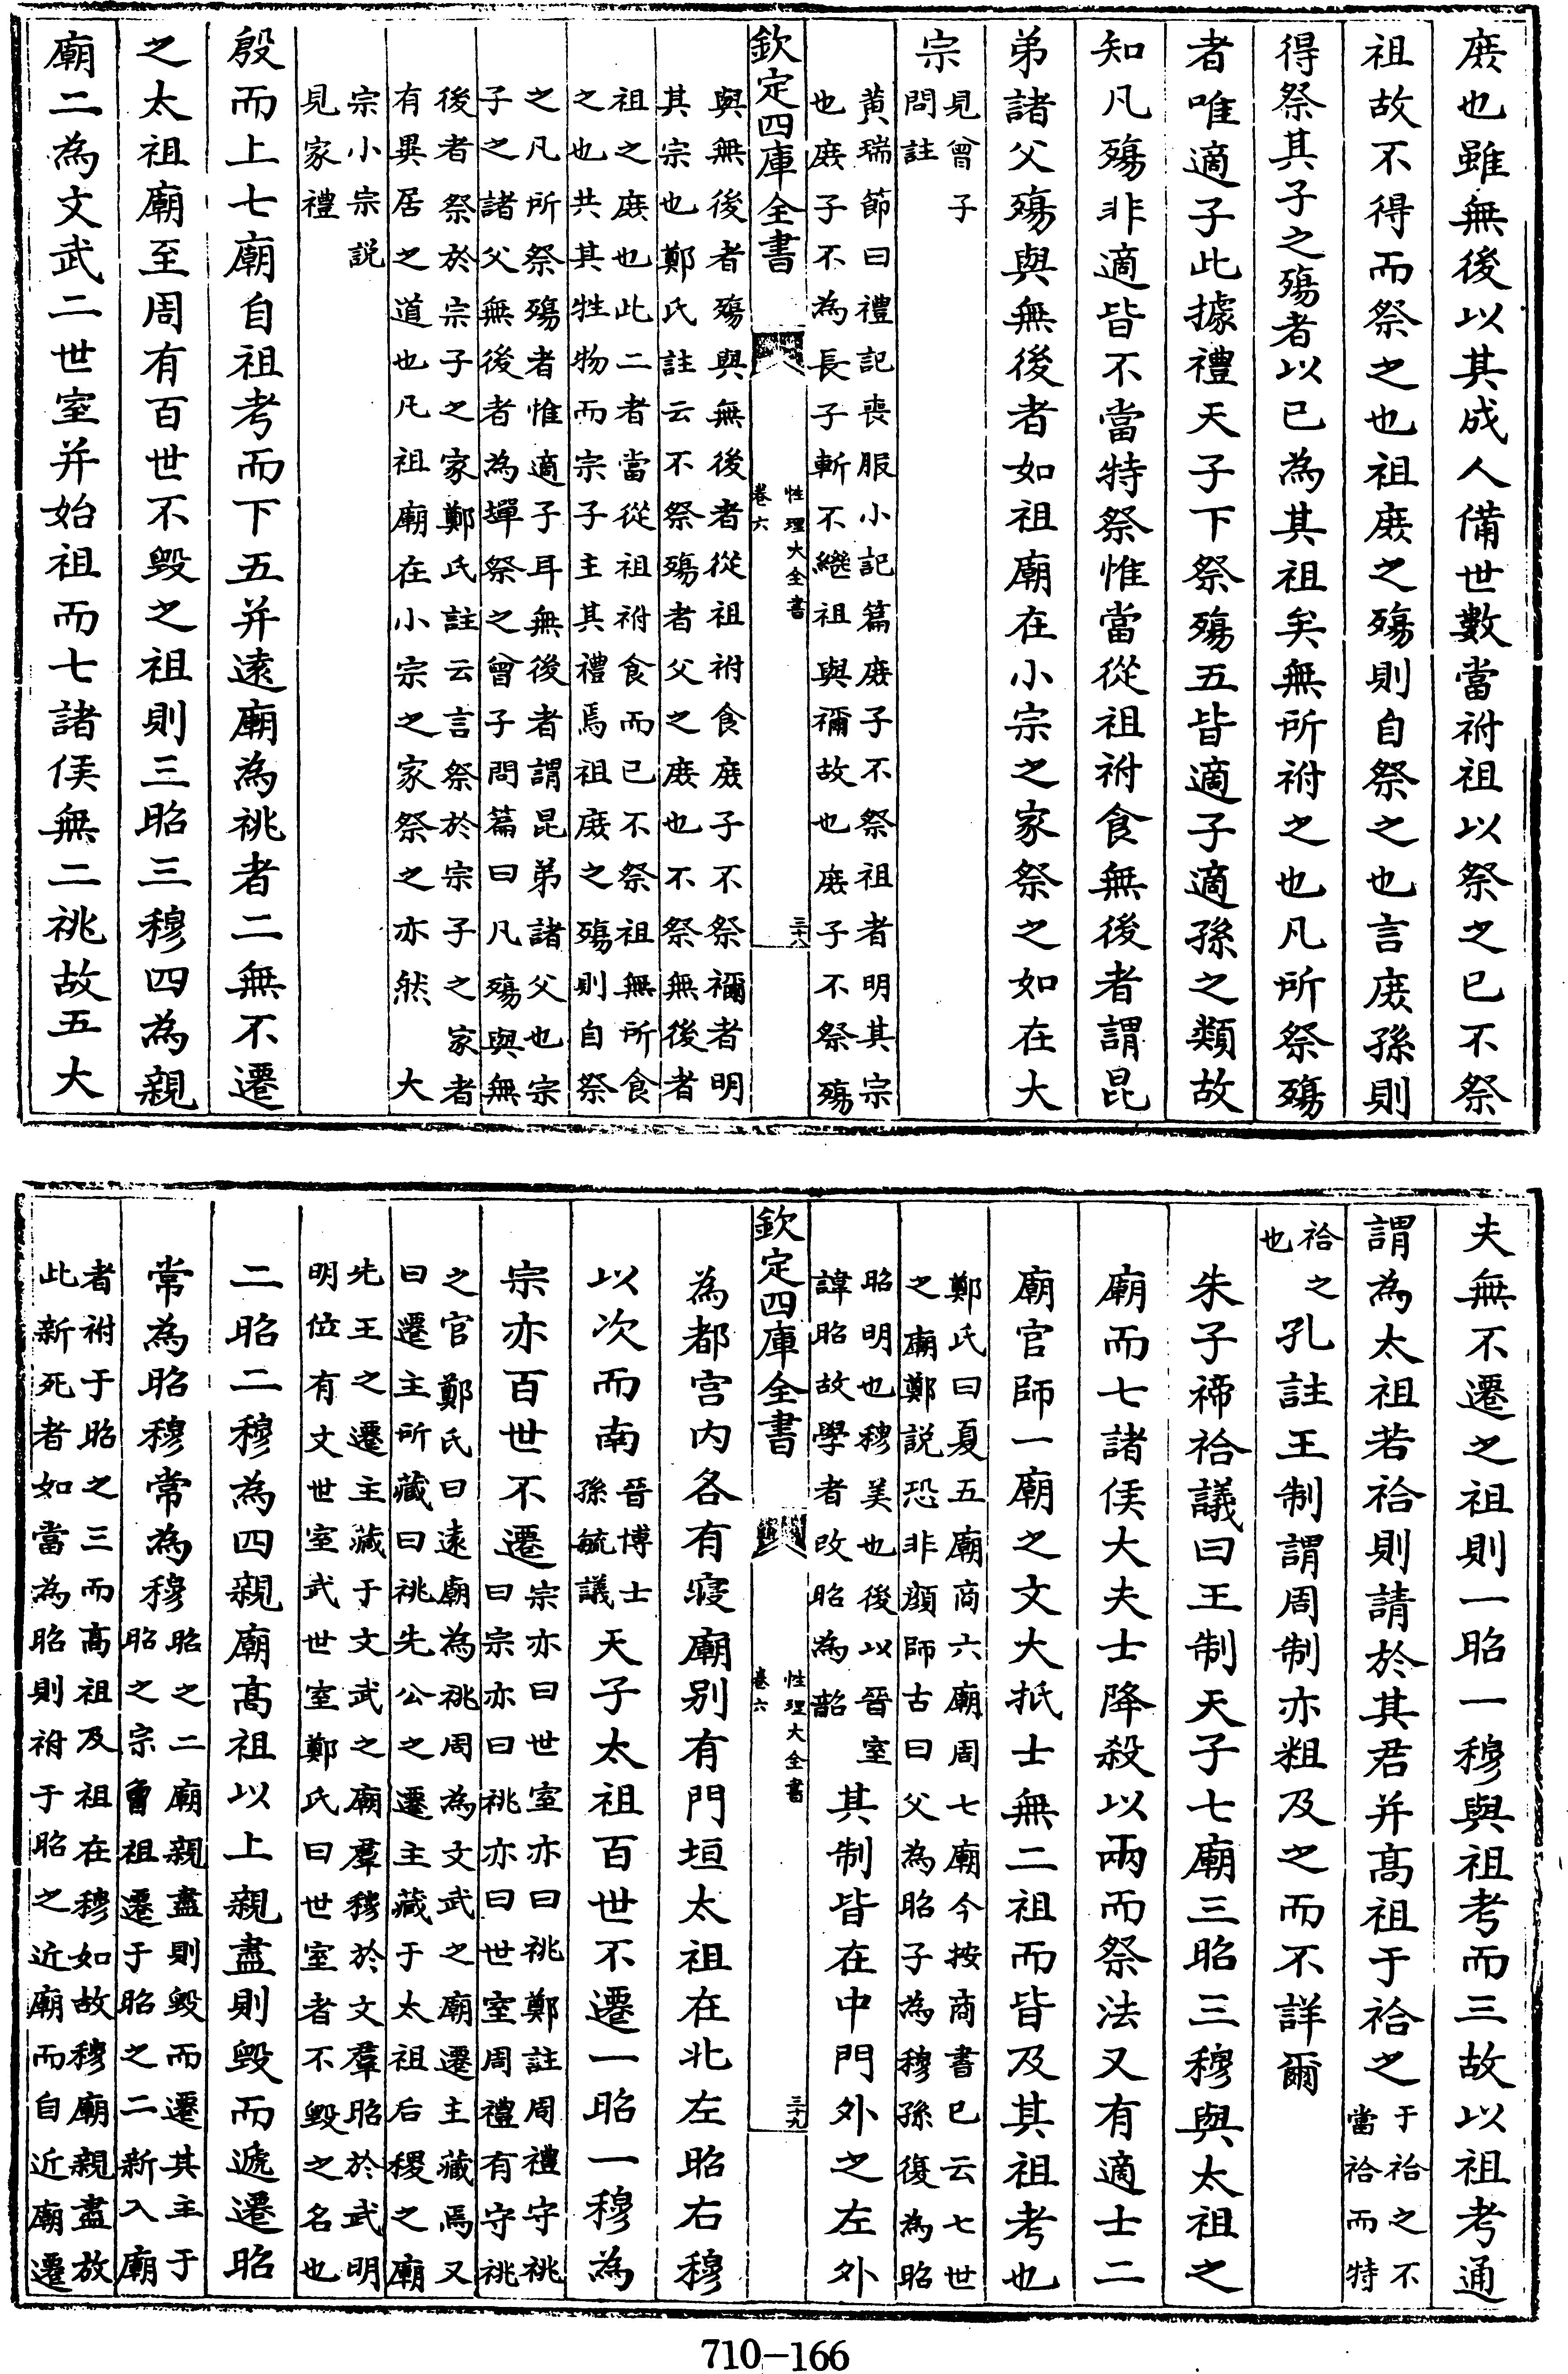 庶也雖無後以其成人備世數當祔祖以祭之已不祭
祖故不得而祭之也祖庶之殤則自祭之也言庶孫則
得祭其子之殤者以已為其祖矣無所祔之也凡所祭殤
者唯適子此據禮天子下祭殤五皆適子適孫之類故
知凡殤非適皆不當特祭惟當從祖祔食無後者謂昆
弟諸父殤與無後者如祖廟在小宗之家祭之如在大
宗
見曾子
問註
黄瑞節曰禮記喪服小記篇庶子不祭祖者明其宗
也庶子不為長子斬不繼祖與禰故也庶子不祭殤
欽定四庫全書
性理大全書
卷六
三十八
與無後者殤與無後者從祖祔食庶子不祭禰者明
其宗也鄭氏註云不祭殤者父之庶也不祭無後者
祖之庶也此二者當從祖祔食而已不祭祖無所食
之也共其牲物而宗子主其禮焉祖庶之殤則自祭
之凡所祭殤者惟適子耳無後者謂昆弟諸父也宗
子之諸父無後者為墠祭之曾子問篇曰凡殤與無
後者祭於宗子之家鄭氏註云言祭於宗子之家者
有異居之道也凡祖廟在小宗之家祭之亦然 大
宗小宗説
見家禮
殷而上七廟自祖考而下五并遠廟為祧者二無不遷
之太祖廟至周有百世不毀之祖則三昭三穆四為親
廟二為文武二世室并始祖而七諸侯無二祧故五大
夫無不遷之祖則一昭一穆與祖考而三故以祖考通
謂為太祖若祫則請於其君并高祖于祫之
于祫之不
當祫而特
祫之
也
孔註王制謂周制亦粗及之而不詳爾
朱子禘祫議曰王制天子七廟三昭三穆與太祖之
廟而七諸侯大夫士降殺以兩而祭法又有適士二
廟官師一廟之文大抵士無二祖而皆及其祖考也
鄭氏曰夏五廟商六廟周七廟今按商書已云七世
之廟鄭説恐非顔師古曰父為昭子為穆孫復為昭
昭明也穆美也後以晉室
諱昭故學者改昭為韶
其制皆在中門外之左外
欽定四庫全書
性理大全書
卷六
三十九
為都宫内各有寢廟别有門垣太祖在北左昭右穆
以次而南
晉博士
孫毓議
天子太祖百世不遷一昭一穆為
宗亦百世不遷
宗亦曰世室亦曰祧鄭註周禮守祧
曰宗亦曰祧亦曰世室周禮有守祧
之官鄭氏曰遠廟為祧周為文武之廟遷主藏焉又
曰遷主所藏曰祧先公之遷主藏于太祖后稷之廟
先王之遷主藏于文武之廟羣穆於文羣昭於武明
明位有文世室武世室鄭氏曰世室者不毀之名也
二昭二穆為四親廟高祖以上親盡則毀而遞遷昭
常為昭穆常為穆
昭之二廟親盡則毀而遷其主于
昭之宗曾祖遷于昭之二新入廟
者祔于昭之三而高祖及祖在穆如故穆廟親盡放
此新死者如當為昭則祔于昭之近廟而自近廟遷
710-166